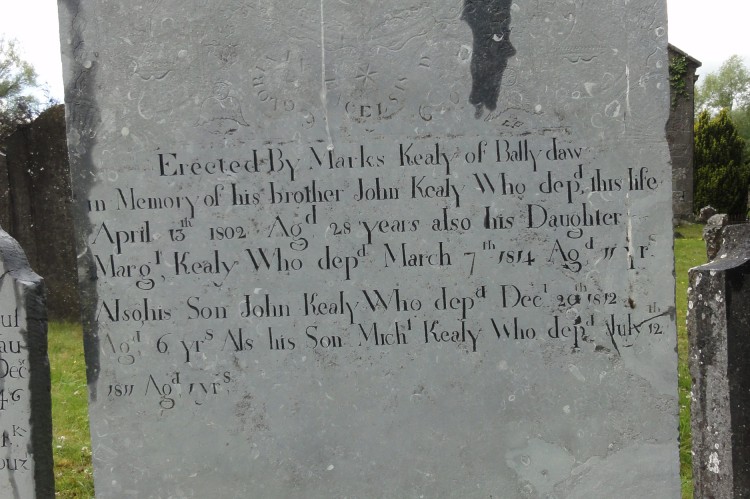 Erected By Marks Kealy of Ballydaw
in Memory of his brother John Kealy Who depd this life
April 13th 1802 Agd 28 years also his Daughter
Margt Kealy Who depd March 7th 1814 Agd 11 yrs
Also his Son John Kealy Who depd Decr 29th 1812
Agd 6 yrs Als his Son Michl Kealy Who depd July 12th
1811 Agd 1 yrs